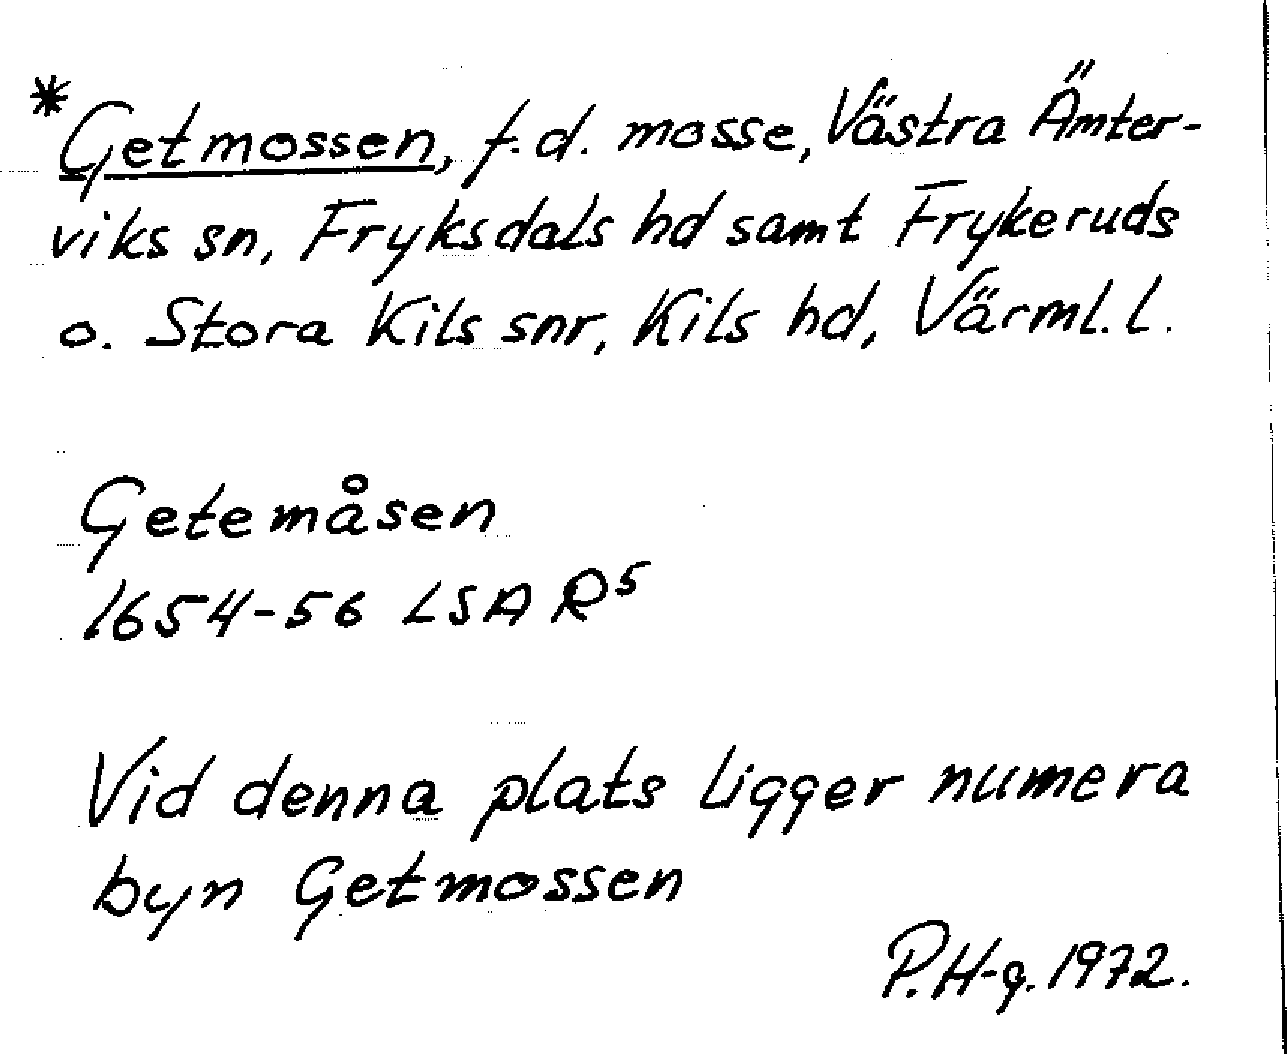 *Getmossen, f.d. mosse, Västra Ämter-
viks sn, Fryksdals hd samt Frykeruds
o. Stora Kils snr, Kils hd, Värml. l.
Getemåsen
1654-56 LSA R⁵
Vid denna plats ligger numera
byn Getmossen
P.H-g. 1972.